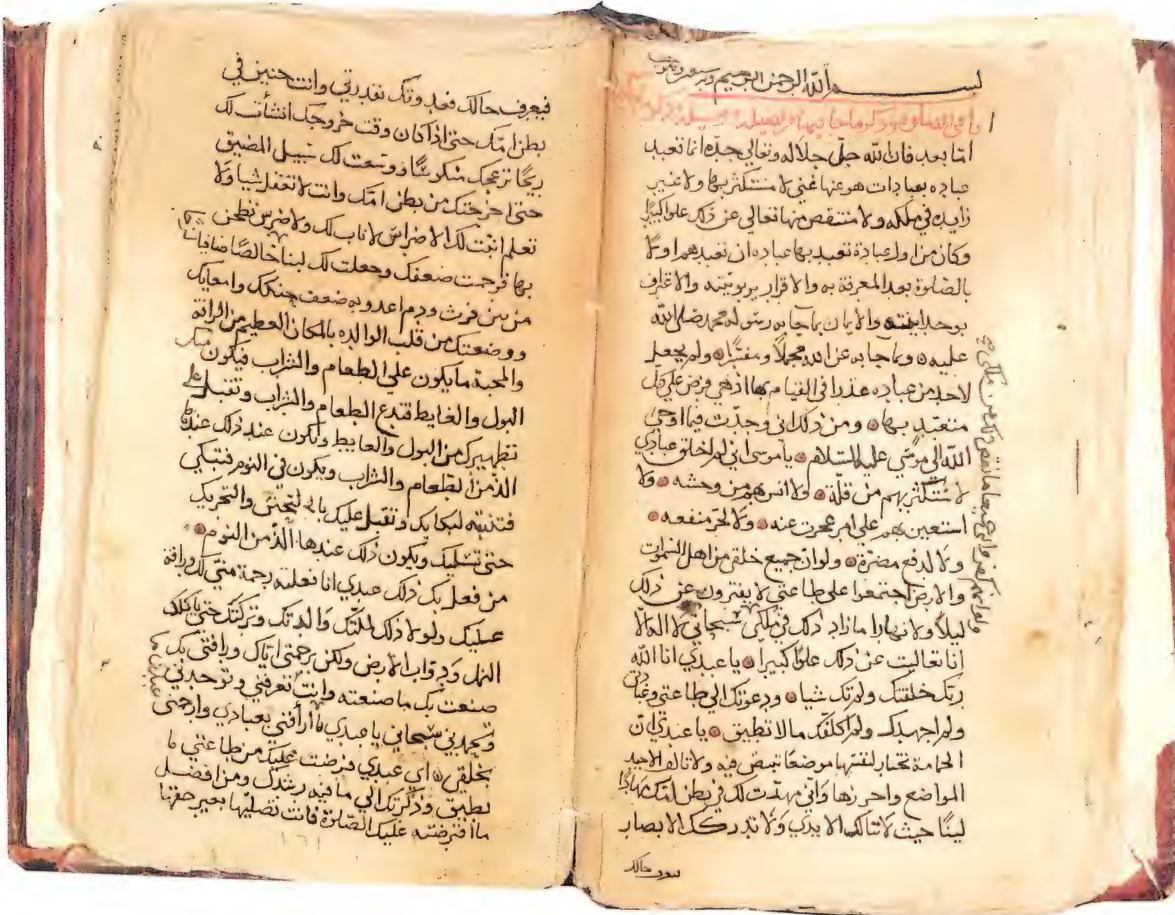 بسم الله الرحمن الرحيم وبه
اما بعد فان الله جل جلاله وتعالى جده انما تعبد
عباده بعبادات هو عنها غني لا متكثر بها ولا غير
زايد في ملكه ولا منتقص منها تعالى عن ذلك علوا كبيرا
وكان من اول عبادة تعبد بها عباده ان تعبدهم اولا
بالصلوة بعد المعرفة به والاقرار بربوبيته والاعتراف
بوحدانيته والايمان بما جا به رسوله محمد صلى الله
عليه وبما جا به عن الله مجملا ومفسرا ولم يجعل
لاحد من عباده عذرا في القيام بها اذ هي فرض على كل
متعبد بها ومن ذلك اني وجدت فيما اوحى
الله الى موسى عليه السلام يا موسى اني لم اخلق عبادي
لاستكثر بهم من قلة ولا انس بهم من وحشه ولا
استعين بهم على امر عجزت عنه ولا لجر منفعه
ولا لدفع مضرة ولو ان جميع خلقي من اهل السموات
والارض اجتمعوا على طاعتي لا يفترون عن ذلك
ليلا ولا نهارا ما زاد ذلك في ملكي سبحاني لا اله الا
انا تعاليت عن ذلك علوا كبيرا يا عبدي انا الله
ربك خلقتك ولم تك شيا ودعوتك الى طاعتي وعبادتي
ولم اجهدك ولم اكلفك مالا تطيق يا عبدي ان
الحمامة تختار لنفسها موضعا تبيض فيه ولا تالف الا جيد
المواضع واحرزها واني مهدت لك في بطن امك مهادا
لينا حيث لا تنالك الايدي ولا تدركك الابصار
ولو انهم كفروا بي جميعا ما نقص ذلك من ملكي
فيعرف حالك فغدوتك بقدرتي وانت جنين في
بطن امك حتى اذا كان وقت خروجك انشأت لك
ريحا تزعجك منكوسا ووسعت لك سبيل المضيق
حتى اخرجتك من بطن امك وانت لا تعقل شيا ولا
تعلم انبت لك الاضراس لا ناب لك ولا ضرس تطحن
بها فرحمت ضعفك وجعلت لك لبنا خالصا صافيا
من بين فرث ودم اغدو به ضعف حنكك وامعايك
ووضعتك من قلب الوالده بالمكان العظيم من الرافة
والمحبة ما يكون على الطعام والشراب فيكون منك
البول والغايط فتدع الطعام والشراب وتقبل على
تطهيرك من البول والغايط ويكون عند ذلك عندها
الذ من الطعام والشراب ويكون في النوم فتبكي
فتنتبه لبكايك وتقبل عليك بالتحنن والتحريك
حتى تسليك ويكون ذلك عندها الذ من النوم
من فعل بك ذلك عبدي انا فعلته رحمة مني لك ورافة
عليك ولولا ذلك لملتك والدتك وتركتك حتى ياكلك
النمل ودواب الارض ولكن برحمتي اياك ورافتي بك
صنعت بك ما صنعته وانت تعرفني وتوحدني
وتمجدني سبحاني يا عبدي ما أرأفني بعبادي وارحمني
بخلقي اي عبدي فرضت عليك من طاعتي ما
تطيق وذكرتك الى ما فيه رشدك ومن افضل
ما افترضته عليك الصلوة فانت تصليها بغير حقها